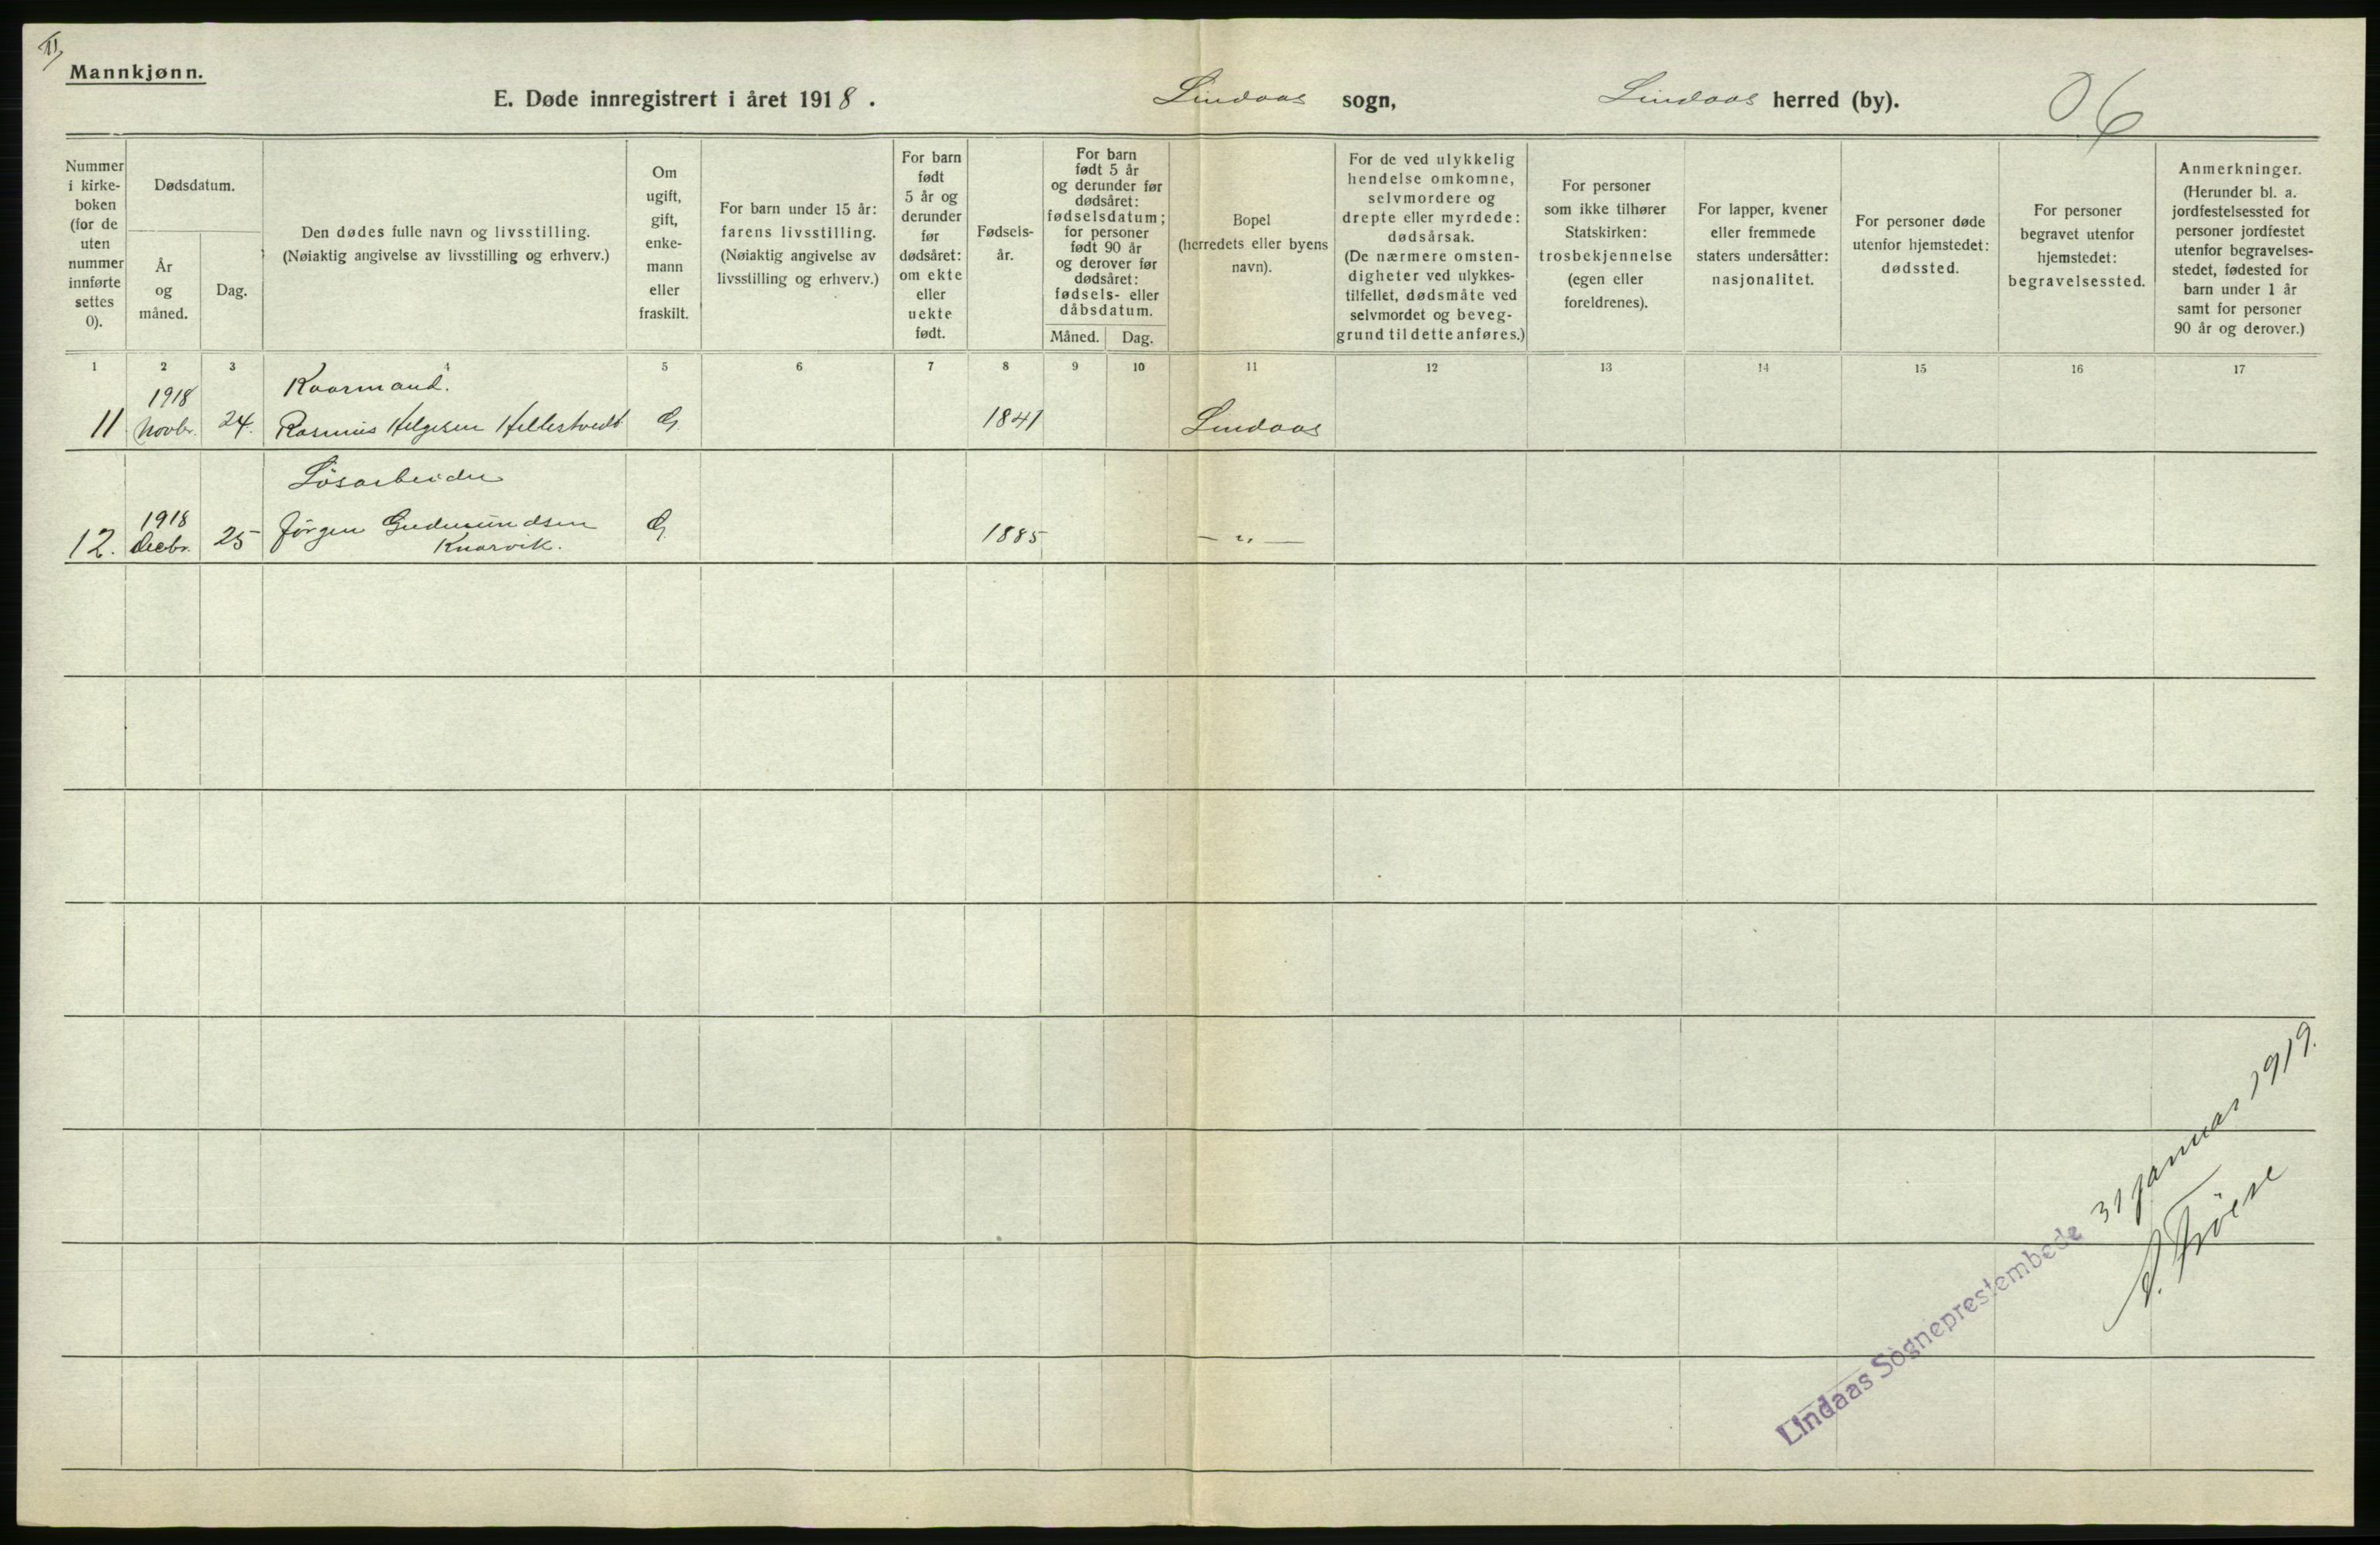 II,
Mannkjønn.
E. Døde innregistrert i året 1918. Lindaas sogn, Lindaas herred (by).
06
Nummer
i kirke-
boken
(for de
uten
nummer
innførte
settes
0).
Dødsdatum.
År
og
måned.
Dag.
Den dødes fulle navn og livsstilling.
(Nøiaktig angivelse av livsstilling og erhverv.)
Om
ugift,
gift,
enke-
mann
eller
fraskilt.
For barn under 15 år:
farens livsstilling.
(Nøiaktig angivelse av
livsstilling og erhverv.)
For barn
født
5 år og
derunder
før
dødsåret:
om ekte
eller
uekte
født.
Fødsels-
år.
For barn
født 5 år
og derunder før
dødsåret:
fødselsdatum;
for personer
født 90 år
og derover før
dødsåret:
fødsels- eller
dåbsdatum.
Måned. Dag.
Bopel
(herredets eller byens
navn).
For de ved ulykkelig
hendelse omkomne,
selvmordere og
drepte eller myrdede:
dødsårsak.
(De nærmere omsten-
digheter ved ulykkes-
tilfellet, dødsmåte ved
selvmordet og beveg-
grund til dette anføres.)
For personer
som ikke tilhører
Statskirken:
trosbekjennelse
(egen eller
foreldrenes).
For lapper, kvener
eller fremmede
staters undersåtter:
nasjonalitet.
For personer døde
utenfor hjemstedet:
dødssted.
For personer
begravet utenfor
hjemstedet:
begravelsessted.
Anmerkninger.
(Herunder bl. a.
jordfestelsessted for
personer jordfestet
utenfor begravelses-
stedet, fødested for
barn under 1 år
samt for personer
90 år og derover.)
1 2 3 4 5 6 7 8 9 10 11 12 13 14 15 16 17
1918 Kaarmand.
11 Novbr. 24. Rasmus Helgesen Hellestvedt G 1841 Lindaas
Løsarbeider
1918
12. Decbr. 25 Jörgen Gudmundsen G 1885 — " —
Knarvik.
Lindaas Sogneprestembede 31 januar 1919.